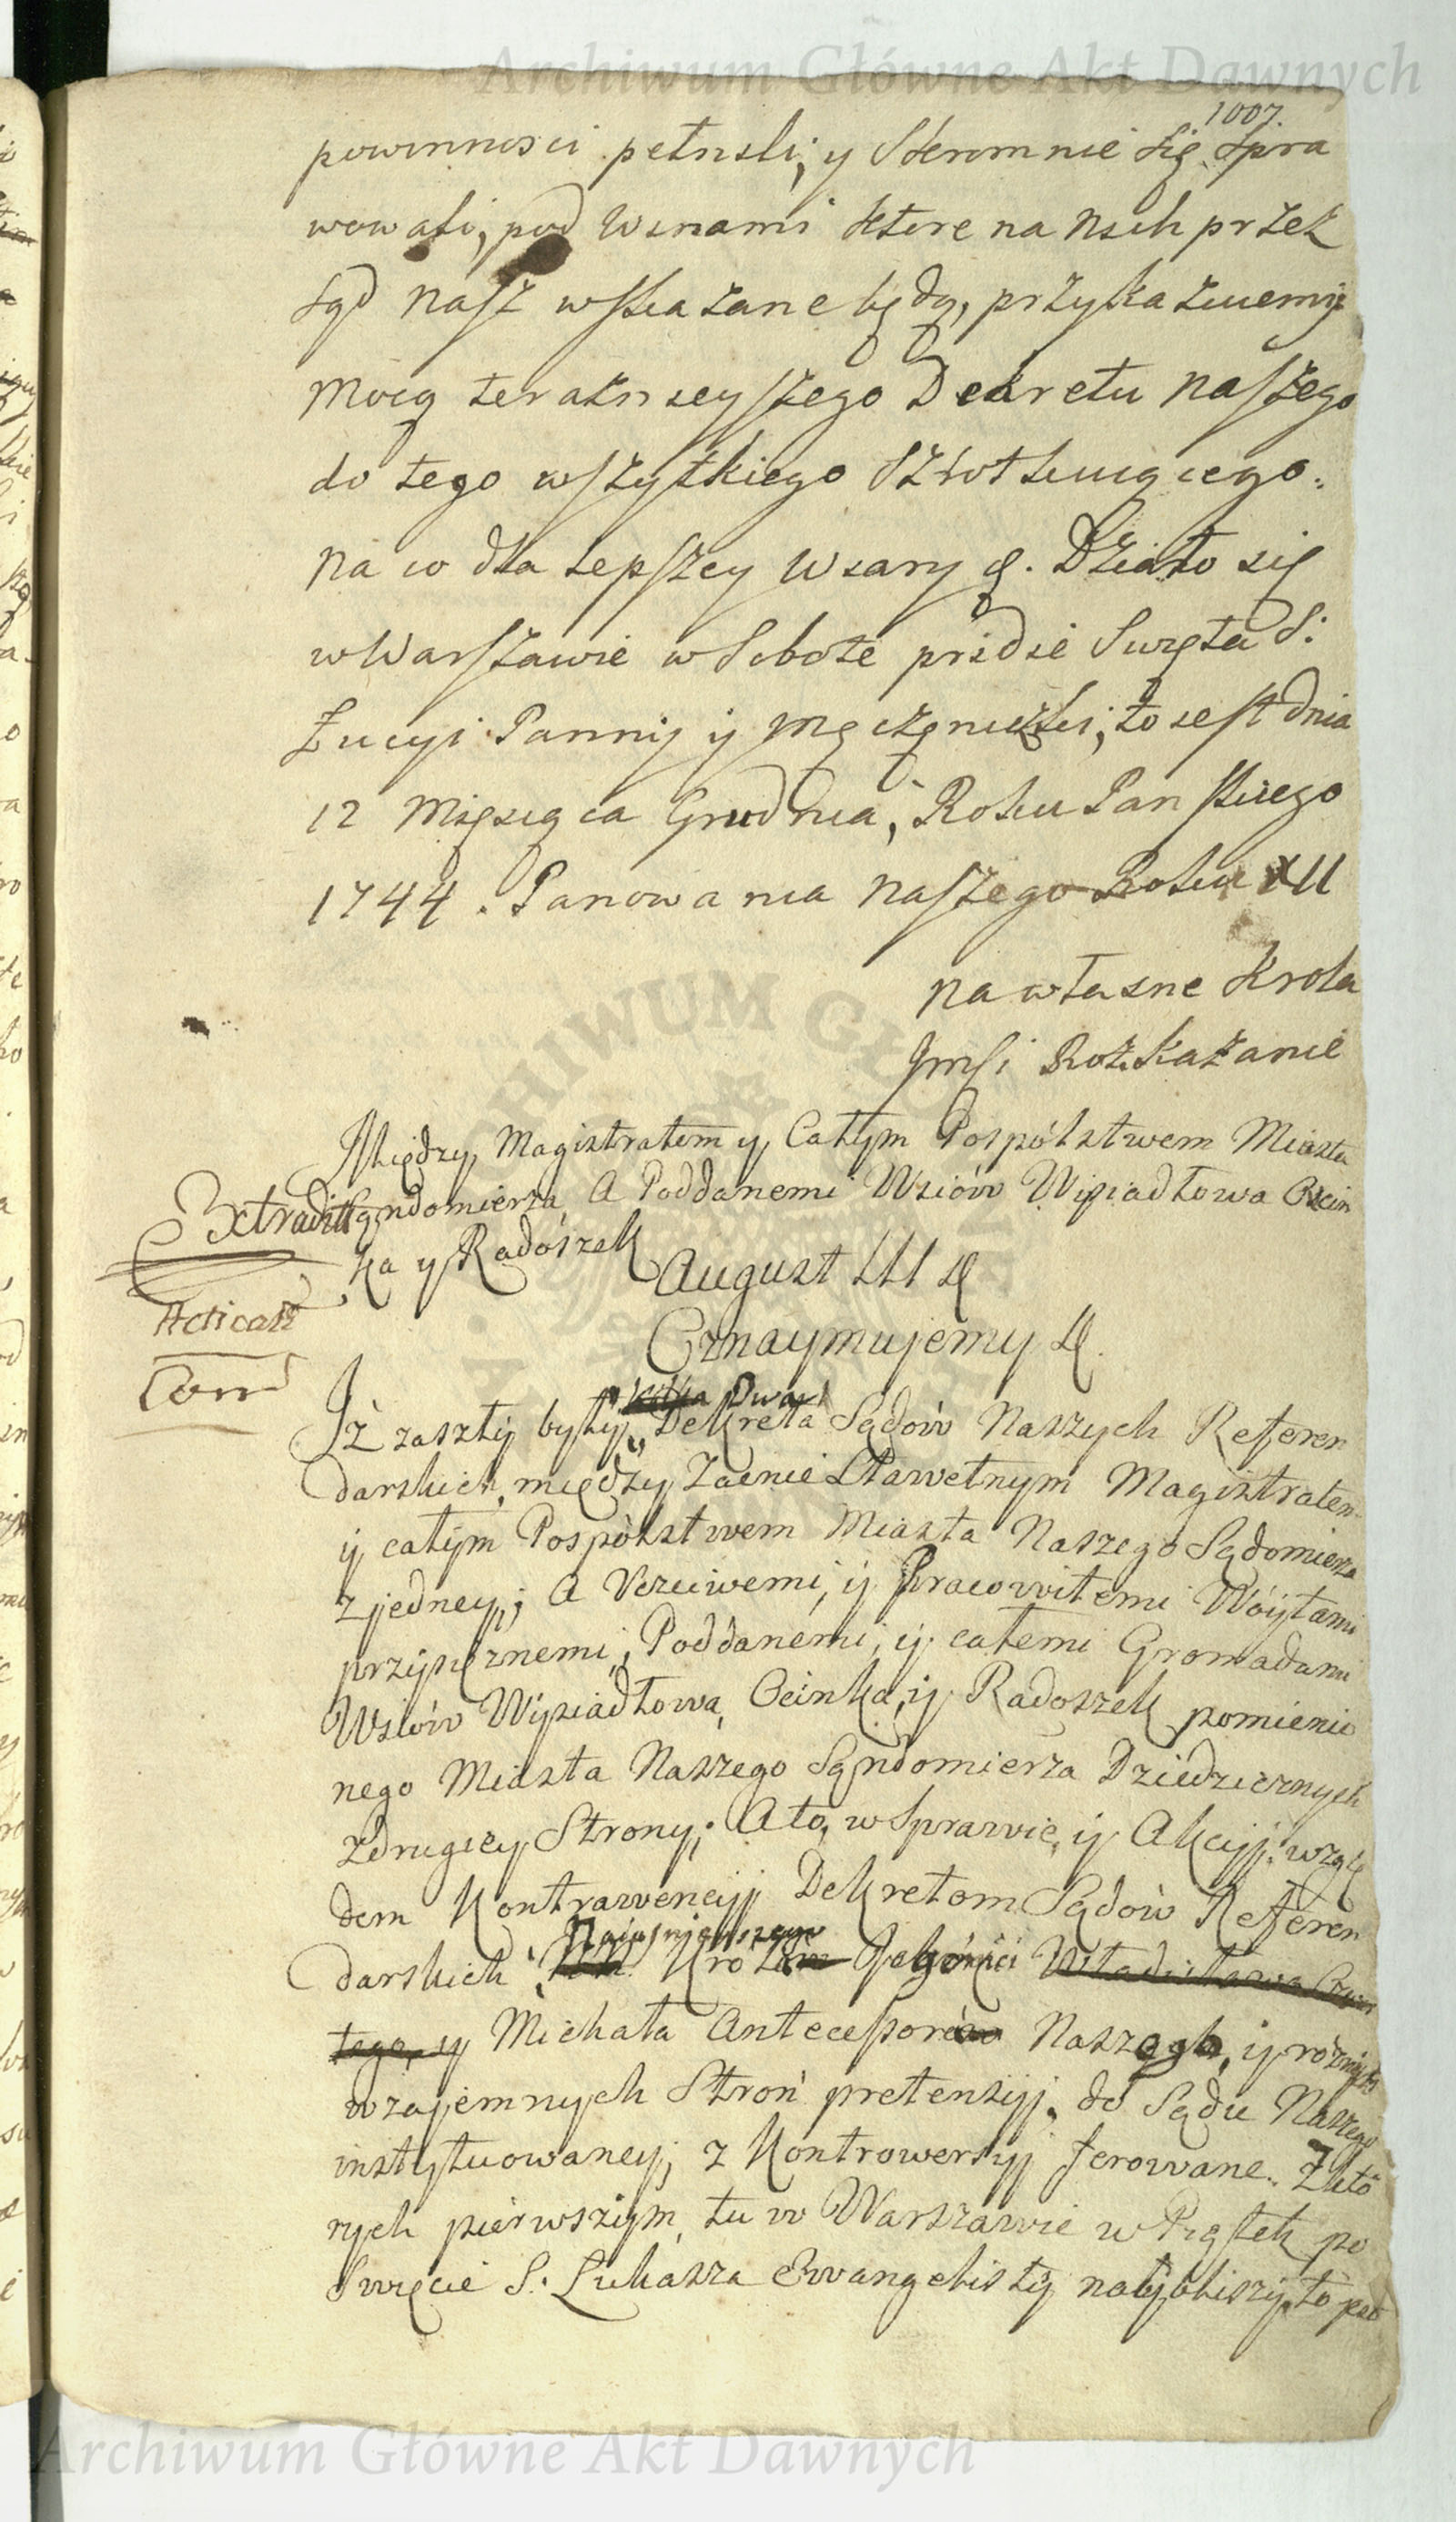 Archiwum Główne Akt Dawnych
1007.
powinnosci pełnili, y Skromnie się Spra
wowali, pod Winami ktore na Nich przez
Sąd nasz wskazane będą, przykazuiemy
mocą teraznieyszego Dekretu naszego
do tego wszytkiego Szrotłuiącego.
na co dla lepszey Wiary &. Działo się
w Warszawie w Sobotę pridie Swięta S:
Łucyi Panny y Męczęniczki, to iest dnia
12 Miesiąca Grudnia, Roku Panskiego
1744. Panowania naszego Roku XII
na własne Krola
Jmsci Rozkazanie
Między Magistratem y Całym Pospólstwem Miasta
Sąndomierza, A Poddanemi Wsiów Wysiadłowa Ocin
ka y Radószek
Extradit
Acticat
Corr
August III &
Oznaymujemy &.
Dwa
Iż zaszły były Dekreta Sądów Naszych Referen
darskich, między Zacnie Sławetnym Magistratem
y całym Pospólstwem Miasta Naszego Sądomierza
z jedney; A Uczciwemi, y Pracowitemi Wóytami
przysiężnemi, Poddanemi, y całemi Gromadami
Wsiów Wysiadłowa, Ocinka, y Radoszek pomienio
nego Miasta Naszego Sąndomierza Dziedzicznych
z drugiey Strony; A to, w Sprawie, y Akcyj, wzglę
dem Kontrawencyj Dekretom Sądów Referen
Naiaśnieyszego
darskich Króla Jegomści Władisława Czwar
tego, y Michała Antecessorów Naszego, y róznych
wzajemnych Stron pretensyj, do Sądu Naszego
instytuowaney, z Kontrowersyj ferowane. Z któ
rych pierwszym, tu w Warszawie w Piątek po
Swięcie S. Lukasza Ewangelisty naybliszym, to pod
Archiwum Główne Akt Dawnych